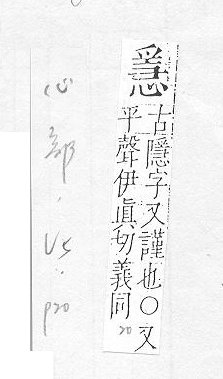 㥯
古隱字又謹也○又
平聲伊眞切義同
20
心部, V5: p20